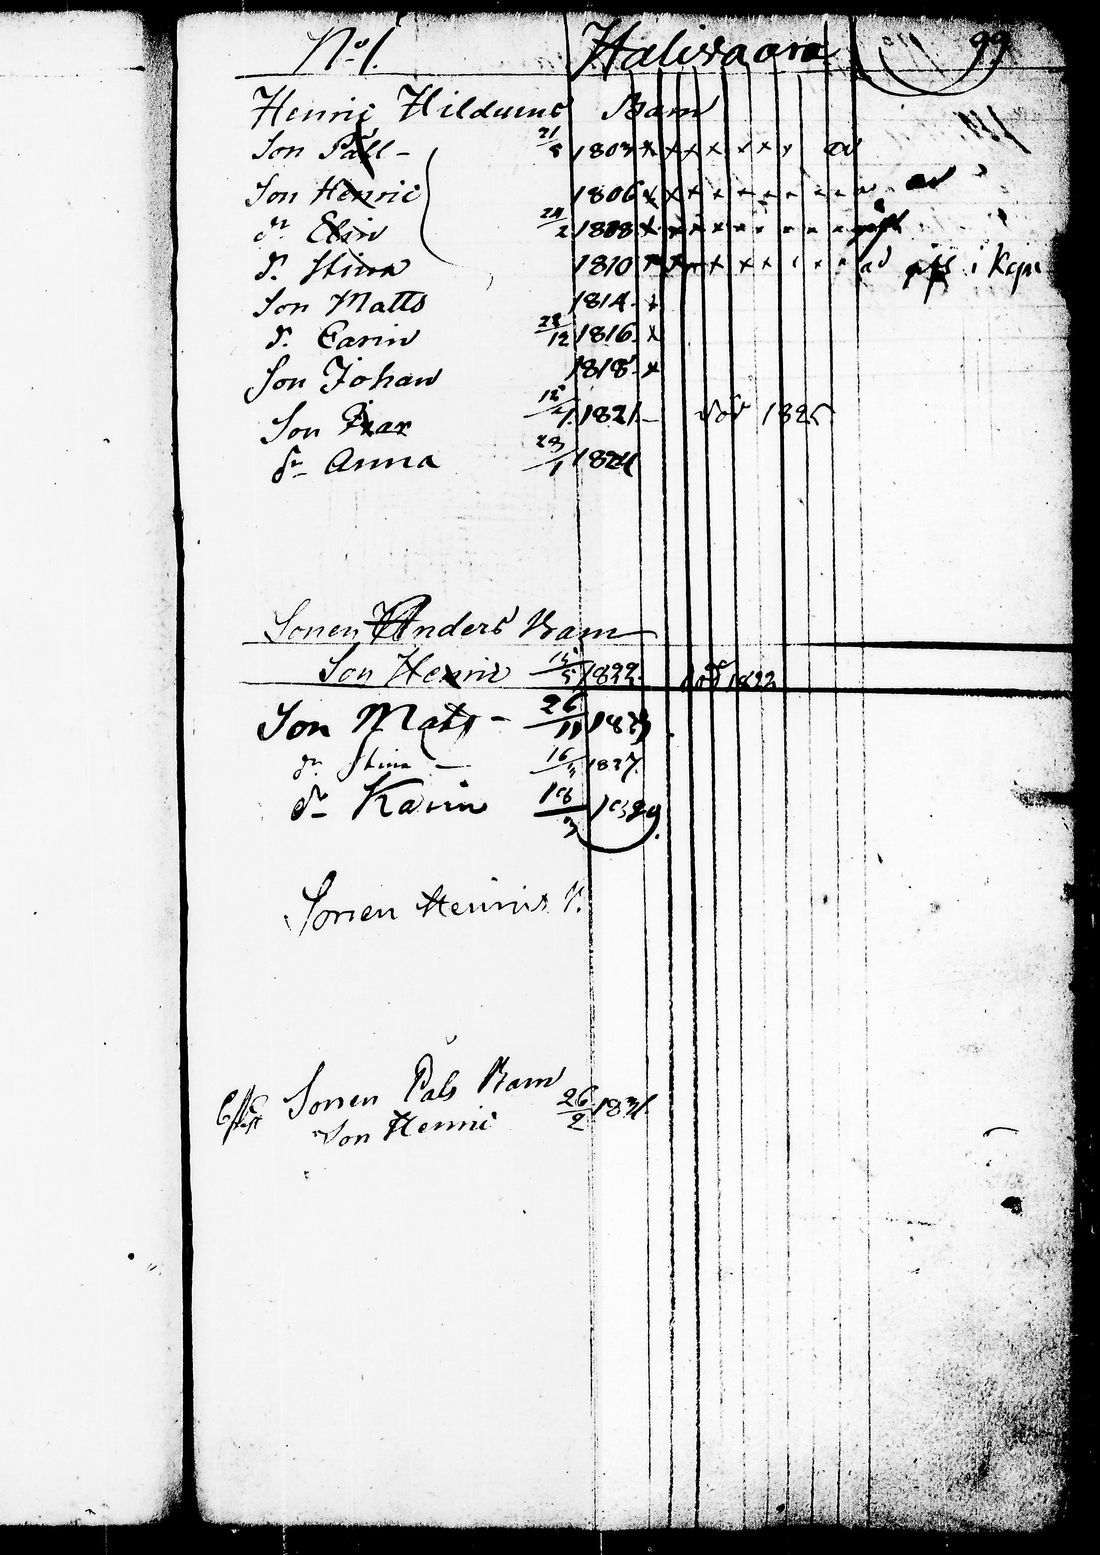 No 1. Halisvaara 99
Henric Hilduens Barn
Son Påll - 21/8 1803 x x x x x x x
Son Henric 1806 x x x x x x x
dr. Elin 24/2 1808 x x x x x x x
dr. Stina 1810 x x x x x x i Kcpn
Son Matts 1814. x
dr. Carin 28/12 1816. x
Son Johan 1818. x
Son Pear 12/4 1821. död 1825
dr Anna 23/1 1824
Sonen Anders Barn
Son Henric 15/5 1822. död 1822
Son Mats - 26/11 1823
dr. Stina - 16/11 1827.
dr Karin 18/3 1829.
Sonen Henrics
Sonen Pals Barn
Son Henric 26/2 1831.